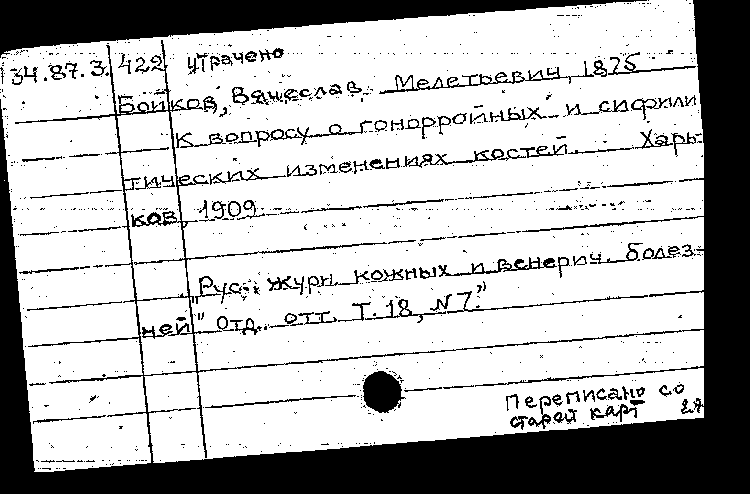 34.87.3. 422 утрачено
Бойков, Вячеслав Мелетьевич, 1875
К вопросу о гонорройных и сифили
тических изменениях костей. Харь-
ков, 1909
"Рус. журн. кожных и венерич. болез-
ней" Отд. отт. Т. 18, № 7."
Переписано со
старой карт